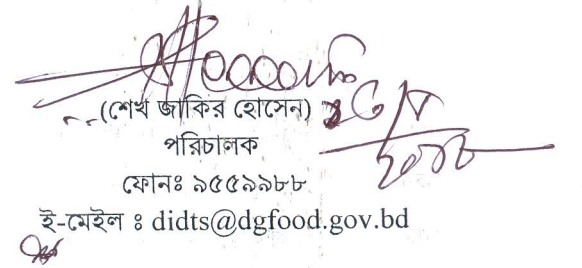 (শেখ জাকির হোসেন)
পরিচালক
ফোনঃ ৯৫৫৯৯৮৮
ই-মেইল ঃ didts@dgfood.gov.bd